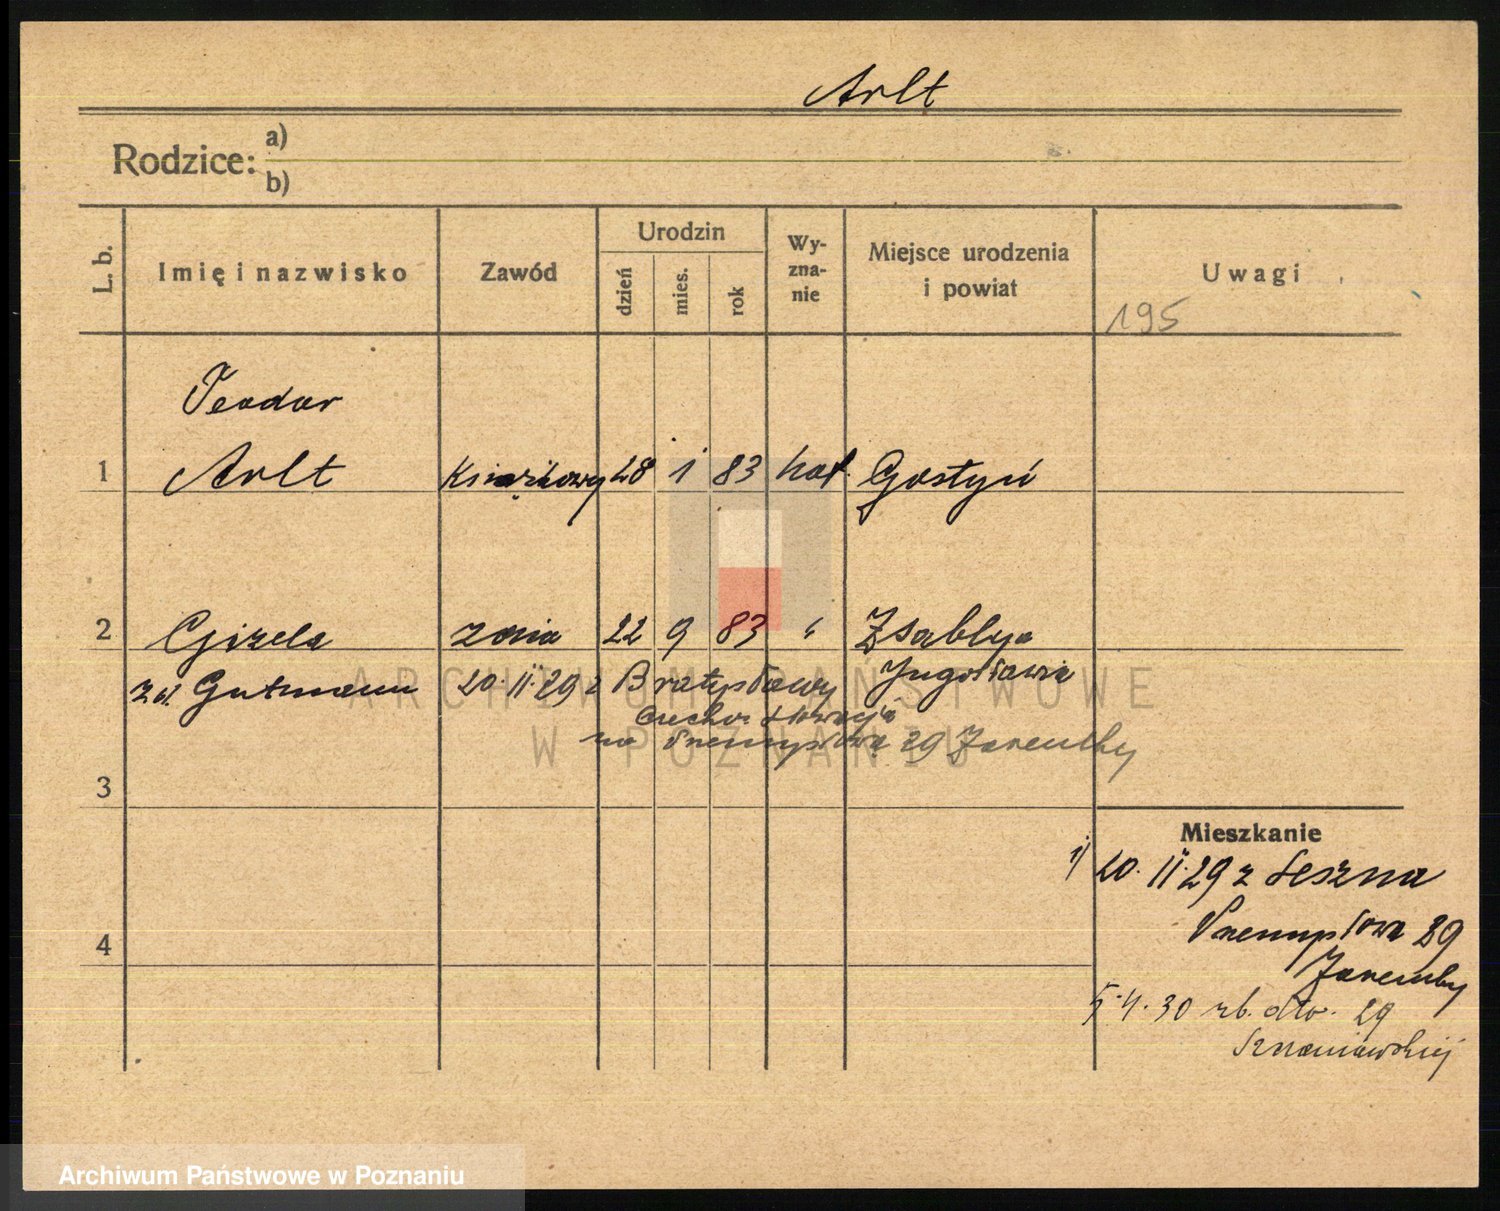 Arlt
Rodzice: a)
b)
L. b.
Imię i nazwisko
Zawód
Urodzin
dzień
mies.
rok
Wy-
zna-
nie
Miejsce urodzenia
i powiat
Uwagi
195
Teodor
1 Arlt 28 1 83 kat. Gostyń
2 Gizela żona 22 9 83 " Zsablya
Jugosławia
zd. Gutmann 20.II.29 z Bratysławy
na Przemysłową 29 Zaremby
3
4
Mieszkanie
1) 20.II.29 z Leszna
Przemysłowa 29
Zaremby
5.4.30 rb. dto. 29
ARCHIWUM PAŃSTWOWE
W POZNANIU
Archiwum Państwowe w Poznaniu